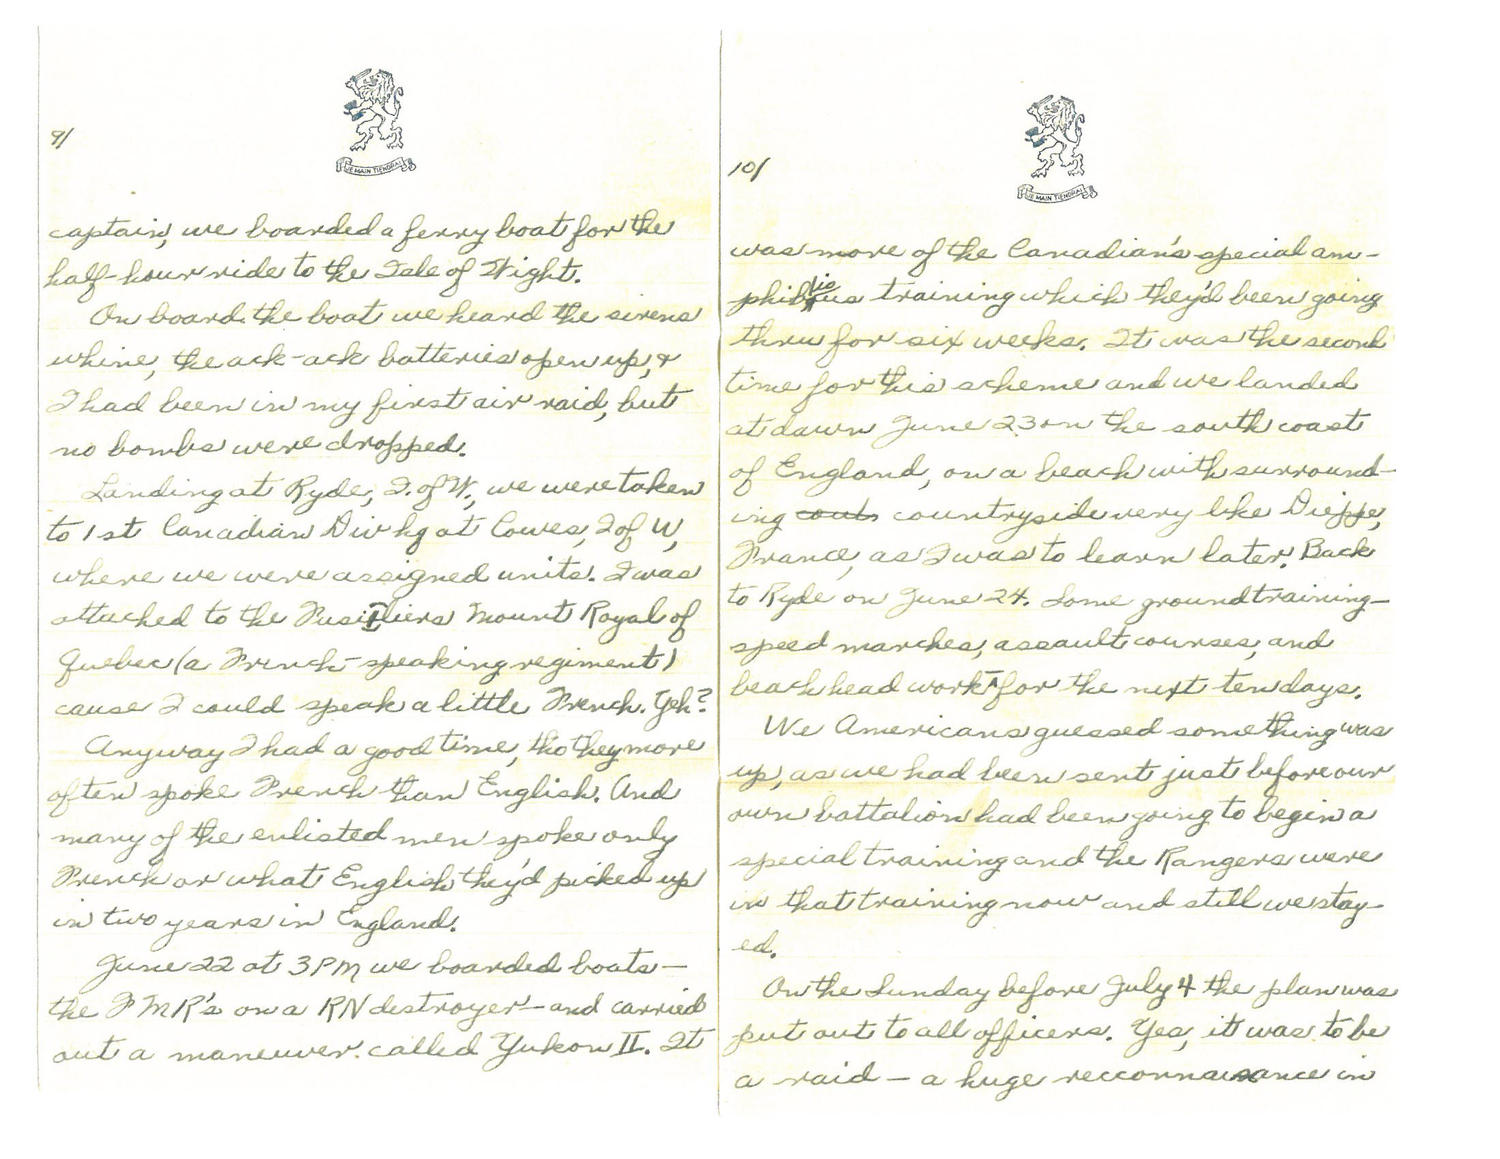 9/
JE MAIN TIENDRAI
captain, we boarded a ferry boat for the
half-hour ride to the Isle of Wight.
On board the boat we heard the sirens
whine, the ack-ack batteries open up, &
I had been in my first air raid, but
no bombs were dropped.
Landing at Ryde, I. of W., we were taken
to 1st Canadian Div hq at Cowes, I of W,
where we were assigned units. I was
attached to the Fusiliers Mount Royal of
Quebec (a French-speaking regiment)
cause I could speak a little French. Yeh?
Anyway I had a good time, tho they more
often spoke French than English. And
many of the enlisted men spoke only
French or what English they'd picked up
in two years in England.
June 22 at 3PM we boarded boats—
the FMR's on a RN destroyer—and carried
out a maneuver called Yukon II. It
10/
JE MAIN TIENDRAI
was more of the Canadian's special am-
phibious training which they'd been going
thru for six weeks. It was the second
time for this scheme and we landed
at dawn June 23 on the south coast
of England, on a beach with surround-
ing cout countryside very like Dieppe,
France, as I was to learn later. Back
to Ryde on June 24. Some ground training—
speed marches, assault courses, and
beach head work—for the next ten days.
We Americans guessed something was
up, as we had been sent just before our
own battalion had been going to begin a
special training and the Rangers were
in that training now and still we stay-
ed.
On the Sunday before July 4 the plan was
put out to all officers. Yes, it was to be
a raid — a huge recconnaissance in